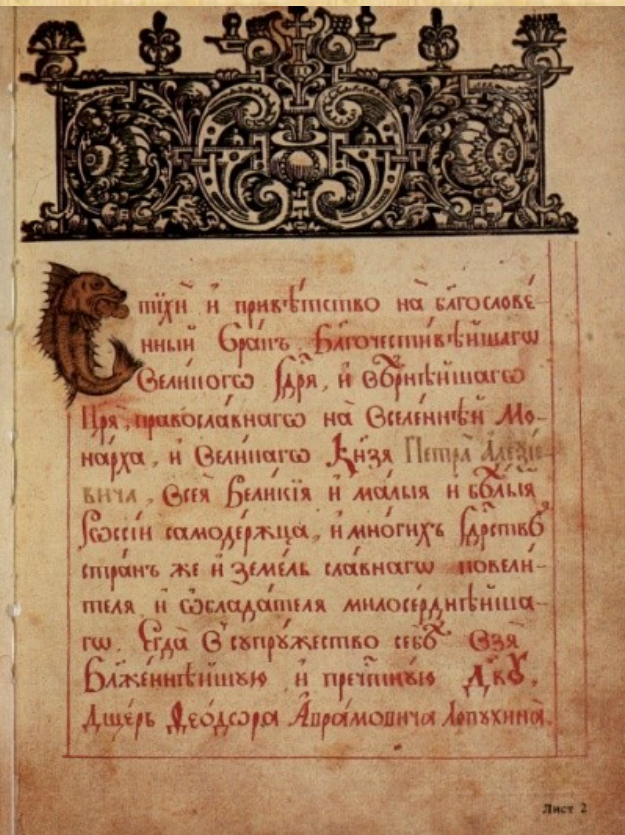 Стіхѝ и҆ привѣ́тство на̀ бл҃гослове́-
нный бра́къ, Бл҃гочести́вѣйшагѡ
Вели́когѡ гдⷭ҇рѧ, и҆
Цр҃ѧ̀, правосла́внагѡ на̀ вселе́ннѣй Мо-
на́рха, и҆ Вели́кагѡ Кн҃зѧ Петра̀ Алеѯі́е-
вича, всеѧ̀ Вели́кїѧ и҆ ма́лыѧ и҆ бѣ́лыѧ
Рѡссі́и самоде́ржца, и҆ мно́гихъ гдⷭ҇рствъ
стра́нъ же и҆ земе́ль сла́внагѡ повели́-
телѧ и҆ ѡ҆блада́телѧ милосе́рднѣйша-
гѡ. Егда̀ в̾ супру́жество себѣ̀ взѧ̀
Блаже́ннѣйшую и҆ преч\҇тну́ю Дв҃у,
Дще́рь Ѳео́дѡра Авра́мовича Лопухина̀.
Лист 2